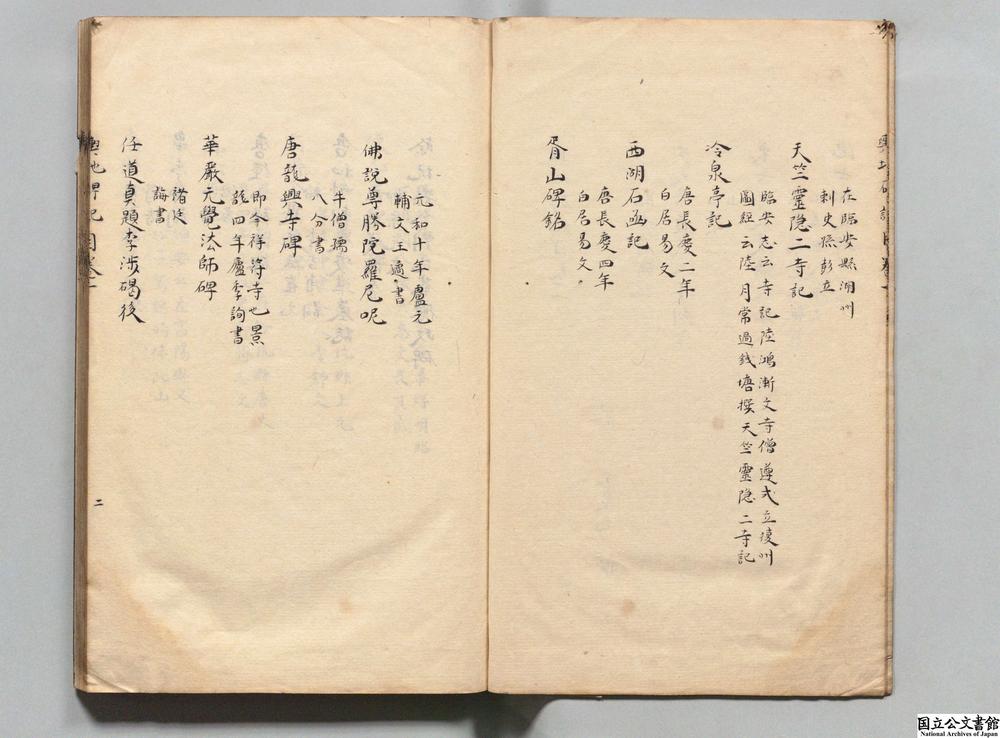 在臨安縣湖州
刺史孫彭立
天竺靈隐二寺記
臨安志云寺記陸鴻漸文寺僧遵式立復州
圖經云陸月常過錢塘撰天竺靈隐二寺記
冷泉亭記
唐長慶二年
白居易文
西湖石函記
唐長慶四年
白居易文
胥山碑銘
元和十年盧元
輔文王遹書
佛說尊勝院羅尼呪
牛僧孺
八分書
唐龍興寺碑
即今祥符寺也景
龍四年盧季詢書
華嚴元覺法師碑
諸廷
誨書
任道真題李涉碣後
輿地碑記目卷一
二
国立公文書館
National Archives of Japan